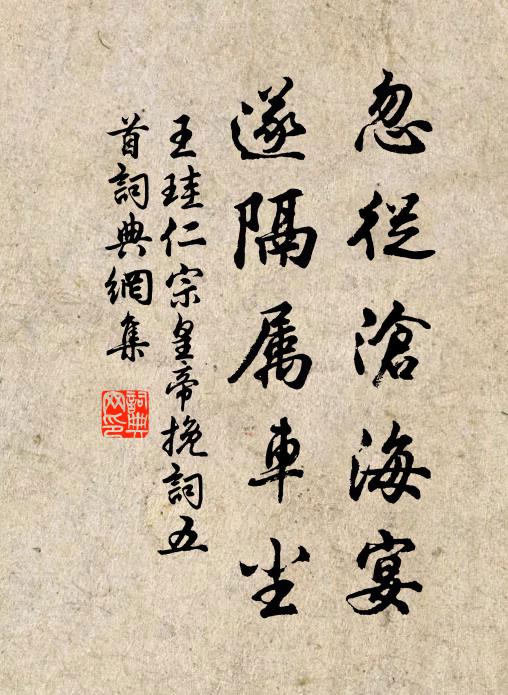 忽從滄海宴
遂隔属車尘
王珪仁宗皇帝挽詞五
首詞典網集
詞典
网印